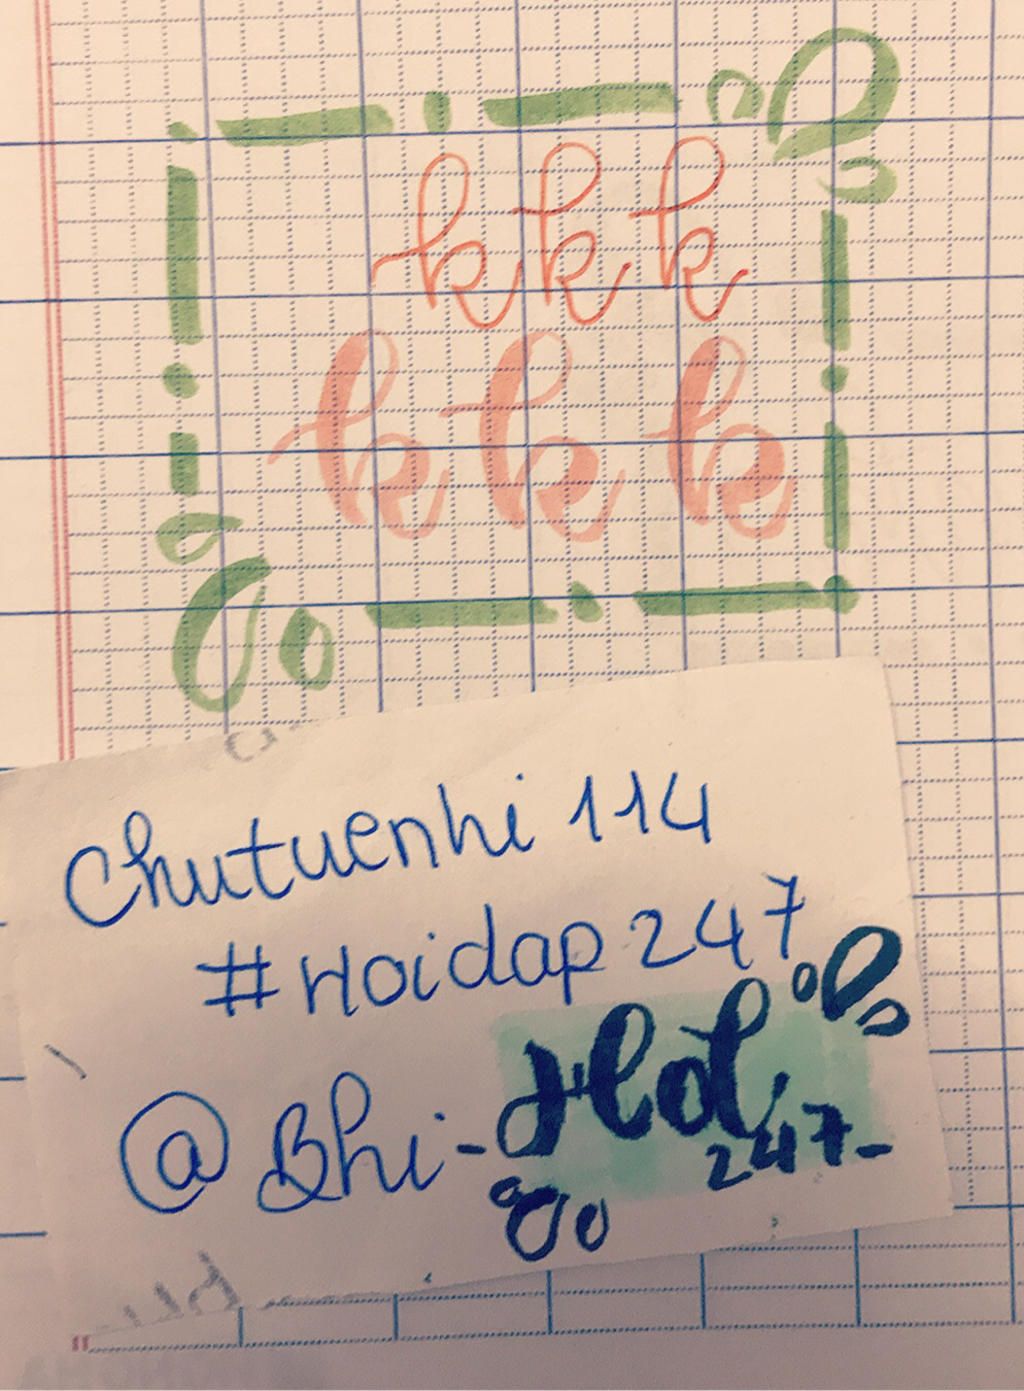 k k k
k k k
Chutuenhi 114
#Hoidap247
@Bhi-
247-